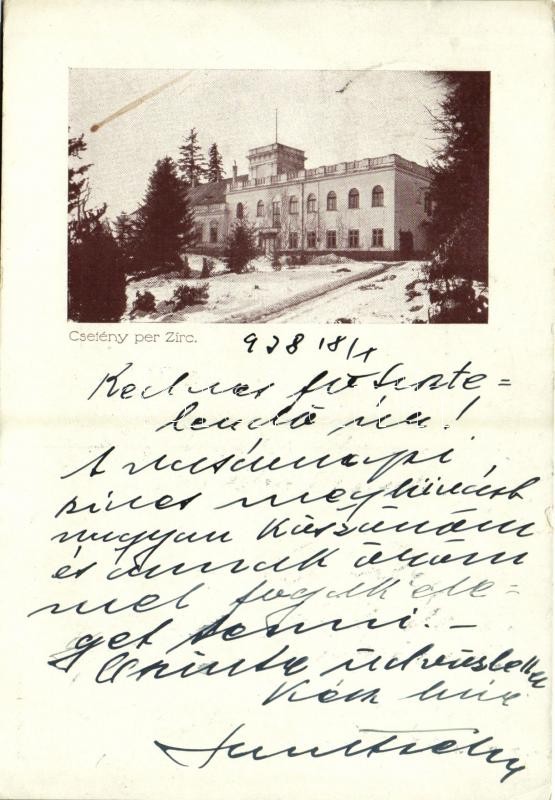 Csetény per Zirc.
Kedves főtiszte=
lendő úr!
A vasárnapi
szives meghivást
nagyon köszönöm
és annak öröm
mel fogok ele=
get tenni.-
Őszinte üdvözlettel
Kész hive